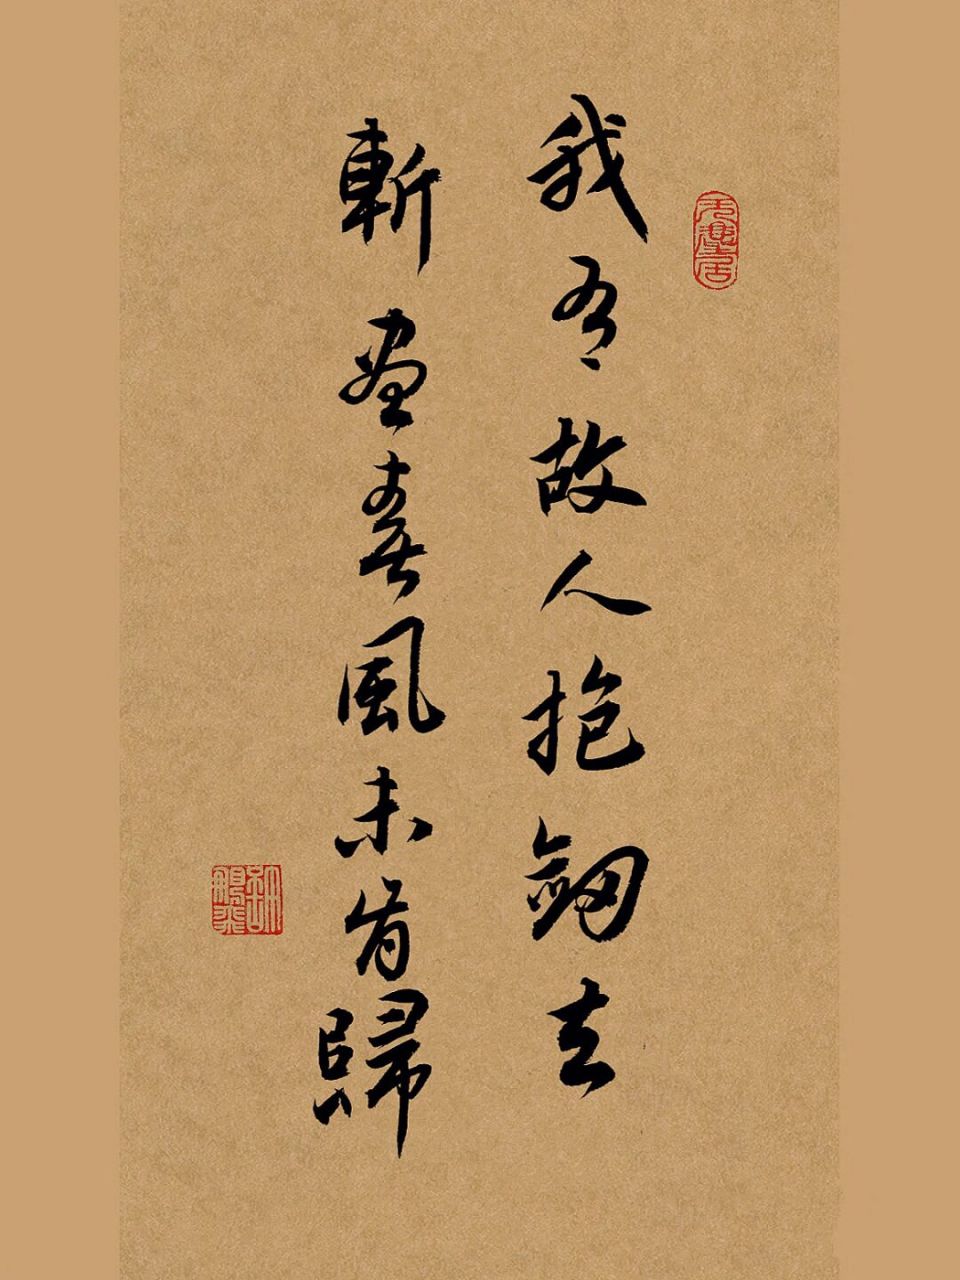 我有故人抱劒去
斬盡春風未肯歸